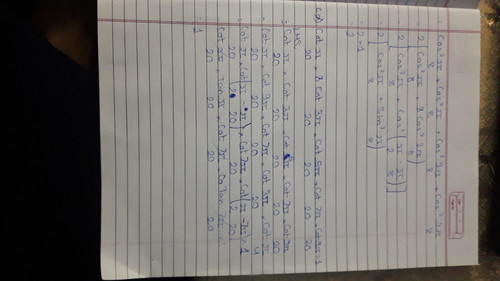 = cos² π/8 + cos² 3π/8 + cos² 3π/8 + cos² π/8
= 2 [ cos² π/8 + cos² 3π/8 ]
= 2 [ cos² π/8 + cos² ( π/2 - π/8 ) ]
= 2 [ cos² π/8 + sin² π/8 ]
= 2 × 1
= 2
cot π/20 × cot 3π/20 × cot 5π/20 × cot 7π/20 × cot 9π/20 = 1
LHS
= cot π/20 × cot 3π/20 × cot 5π/20 × cot 7π/20 × cot 9π/20
= cot π/20 × cot 9π/20 × cot 7π/20 × cot 3π/20 × cot π/4
= cot π/20 × cot ( π/2 - π/20 ) × cot 7π/20 × cot ( π/2 - 7π/20 ) × 1
= cot π/20 × tan π/20 × cot 7π/20 × tan 7π/20
= 1